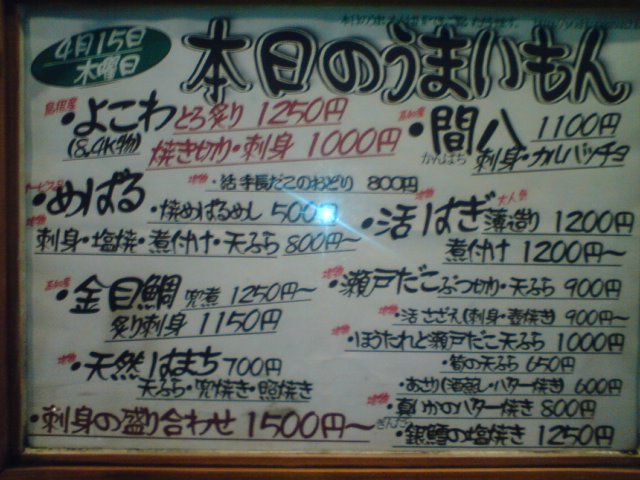 4月15日
木曜日
本日のうまいもん
島根産
・よこわ とろ炙り 1250円
(8,4K物) 焼き切り・刺身 1000円
高知産
・間八 1100円
かんぱち 刺身・カルパッチョ
地物
・活 手長だこのおどり 800円
サービス品
・めばる
・焼めばるめし 500円
地物
刺身・塩焼・煮付け・天ぷら 800円〜
地物 大人気
・活はぎ 薄造り 1200円
煮付け 1200円〜
高知産
・金目鯛 兜煮 1250円〜
炙り刺身 1150円
地物
・瀬戸だこ ぶつ切り・天ぷら 900円
地物
・活 さざえ(刺身・壺焼き) 900円〜
地物
・ほうたれと瀬戸だこ天ぷら 1000円
地物
・天然はまち 700円
天ぷら・兜焼き・照焼き
・筍の天ぷら 650円
・あさり(酒蒸し・バター焼き) 600円
地物
・真いかのバター焼き 800円
・刺身の盛り合わせ 1500円〜
ぎんだら
・銀鱈の塩焼き 1250円